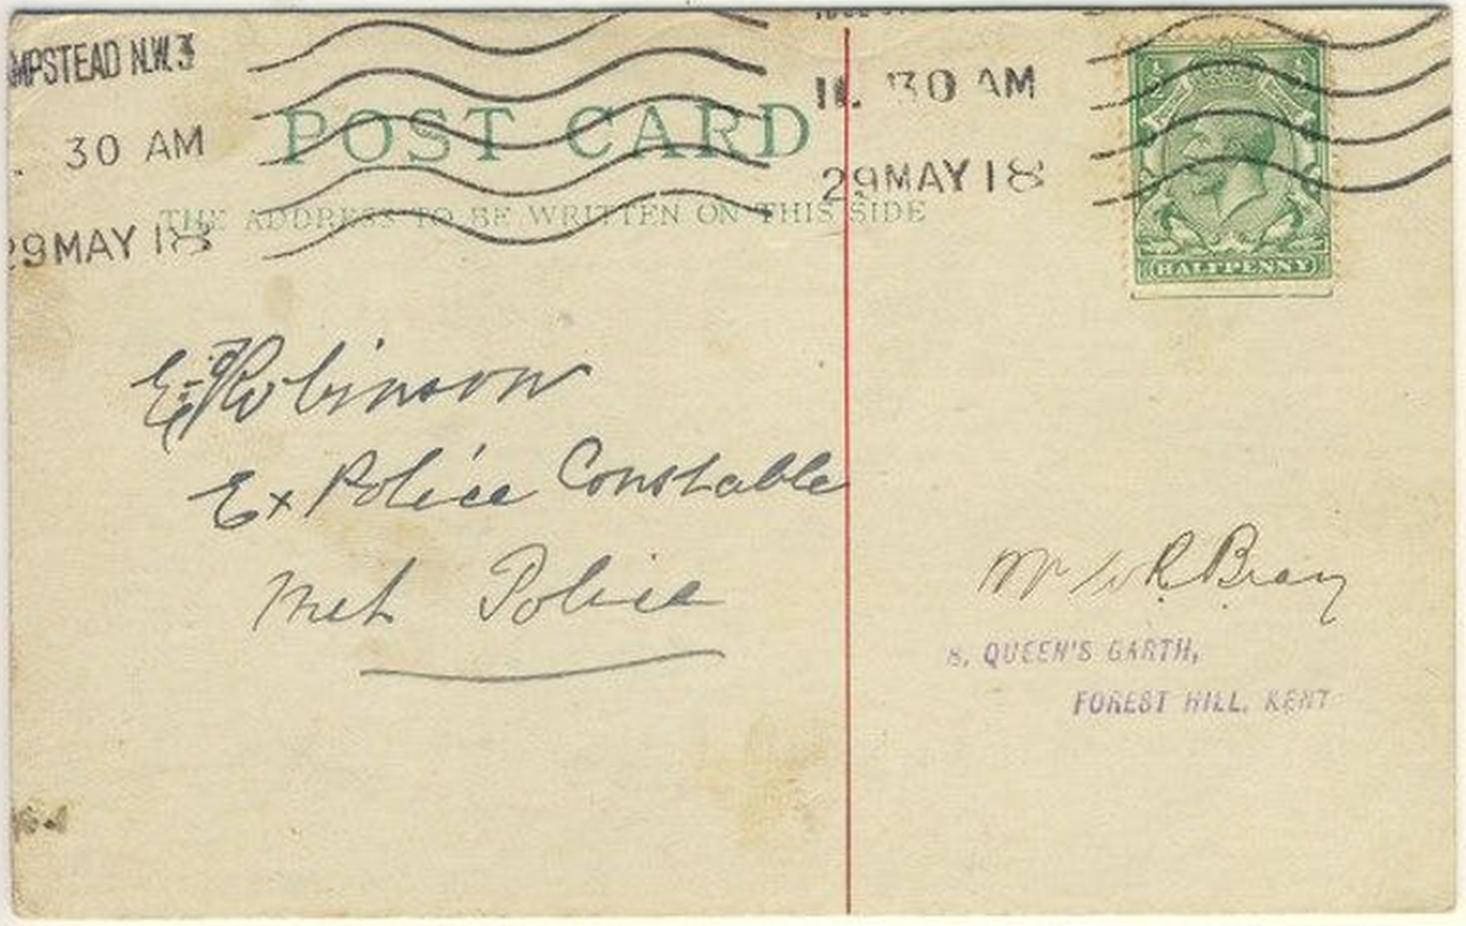 MPSTEAD N.W.3
30 AM
29 MAY 18
11. 30 AM
29 MAY 18
POST CARD
THE ADDRESS TO BE WRITTEN ON THIS SIDE
HALFPENNY
E. Robinson
Ex Police Constable
Met Police
Mr W R Bray
8, QUEEN'S GARTH,
FOREST HILL, KENT